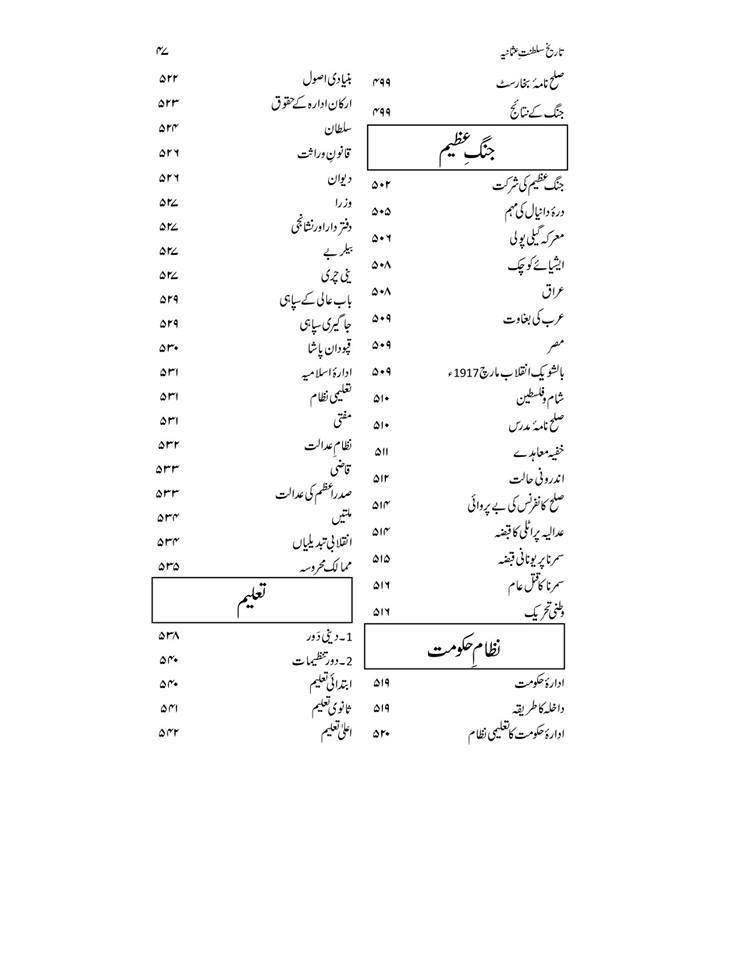 تاریخ سلطنتِ عثمانیہ ۴۷
صلح نامۂ بخارسٹ ۴۹۹
جنگ کے نتائج ۴۹۹
جنگِ عظیم
جنگ عظیم کی شرکت ۵۰۲
درۂ دانیال کی مہم ۵۰۵
معرکہ گیلی پولی ۵۰۶
ایشیائے کوچک ۵۰۸
عراق ۵۰۸
عرب کی بغاوت ۵۰۹
مصر ۵۰۹
بالشویک انقلاب مارچ 1917ء ۵۰۹
شام و فلسطین ۵۱۰
صلح نامۂ مدرس ۵۱۰
خفیہ معاہدے ۵۱۱
اندرونی حالت ۵۱۲
صلح کانفرنس کی بے پروائی ۵۱۴
عدالیہ پر اٹلی کا قبضہ ۵۱۴
سمرنا پر یونانی قبضہ ۵۱۵
سمرنا کا قتل عام ۵۱۶
وطنی تحریک ۵۱۶
نظامِ حکومت
ادارۂ حکومت ۵۱۹
داخلہ کا طریقہ ۵۱۹
ادارۂ حکومت کا تعلیمی نظام ۵۲۰
بنیادی اصول ۵۲۲
ارکان ادارہ کے حقوق ۵۲۳
سلطان ۵۲۴
قانونِ وراثت ۵۲۶
دیوان ۵۲۶
وزرا ۵۲۷
دفتر دار اور نشانجی ۵۲۷
بیلر بے ۵۲۷
ینی چری ۵۲۷
باب عالی کے سپاہی ۵۲۹
جاگیری سپاہی ۵۲۹
قپودان پاشا ۵۳۰
ادارۂ اسلامیہ ۵۳۱
تعلیمی نظام ۵۳۱
مفتی ۵۳۱
نظامِ عدالت ۵۳۲
قاضی ۵۳۳
صدر اعظم کی عدالت ۵۳۳
ملتیں ۵۳۴
انقلابی تبدیلیاں ۵۳۴
ممالک محروسہ ۵۳۵
تعلیم
1۔ دینی دَور ۵۳۸
2۔ دور تنظیمات ۵۴۰
ابتدائی تعلیم ۵۴۰
ثانوی تعلیم ۵۴۱
اعلیٰ تعلیم ۵۴۲